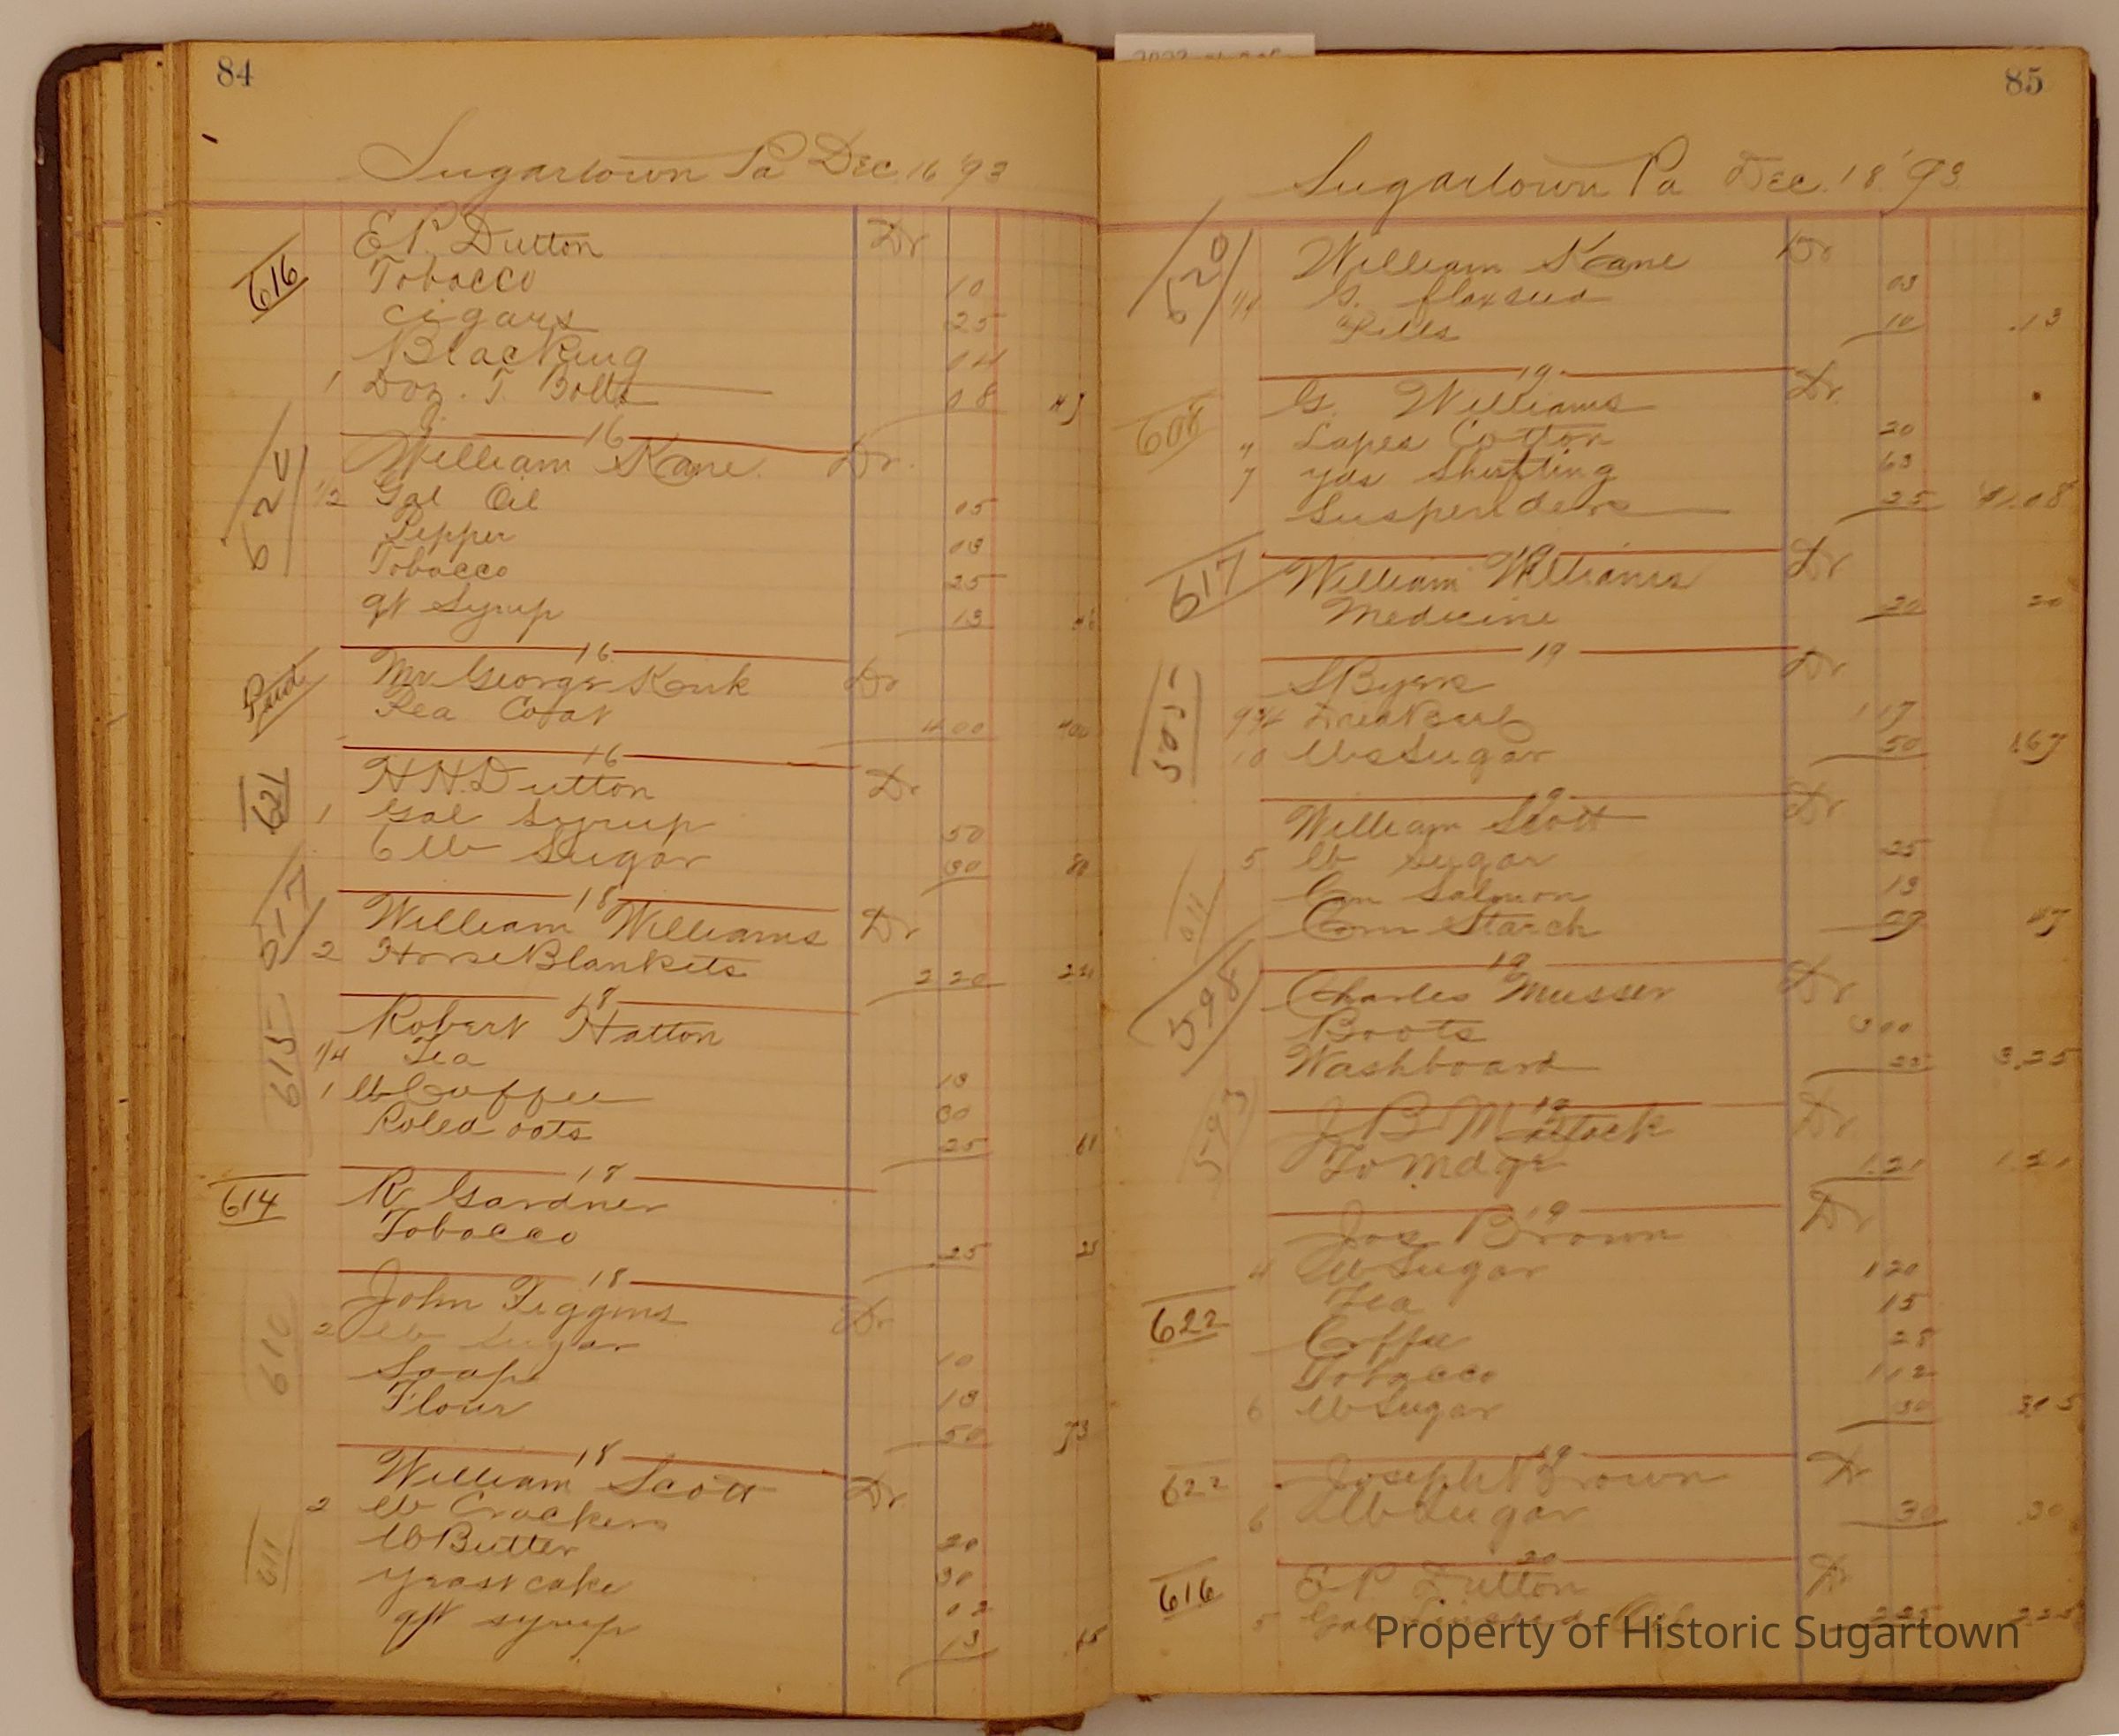 84
Sugartown Pa Dec. 16 '93
616
E P. Dutton Dr
Tobacco 10
Cigars 25
Blacking
1 Doz. T. Bolts 08
16
William Kane. Dr.
1/2 Gal Oil 05
Pepper 03
Tobacco 25
qt Syrup 13 46
16
Paid
Mr George Dr
Pea Coat 4 00 400
16
621
H H. Dutton Dr
1 Gal Syrup 50
6 lb Sugar 30 80
18
617
William Williams Dr
2 Horse Blankets 2 20 220
18
615
Robert Hatton
1/4 Tea 13
1 lb Coffee 30
Roled oats 25
18
614
R. Gardner
Tobacco 25 25
18
610
John Figgins Dr
2 lb Sugar 10
Soap 13
Flour 50 73
18
611
William Scott Dr
2 lb Crackers 20
lb Butter 30
yeast cake 02
qt syrup 13 65
85
Sugartown Pa Dec. 18 '93
620
William Kane Dr
1/4 G. flaxseed 03
Pills 10 .13
19
608
G. Williams Dr.
" Lapes Cotton 20
7 yds Shirting 63
Suspenders 25 $1.08
19
617
William Williams Dr
Medicine 20 20
19
505
S Byers Dr
9 3/4 1 17
10 lbs Sugar 50 1.67
19
611
William Scott Dr
5 lb Sugar 25
Can Salmon 13
Corn Starch 09 47
19
598
Charles Musser Dr
Boots 3 00
Washboard 25 3.25
19
593
J B Matlack Dr
To Mdqs 1.20 1.20
19
622
Jos Brown Dr
4 lb Sugar 1 20
Tea 15
Coffee 28
Tobacco 1 12
6 lb Sugar 30 3.05
19
622
Joseph Brown Dr
6 lb Sugar 30 .30
20
616
E P Dutton Dr
5 Gal Oil 2 25 2.25
Property of Historic Sugartown